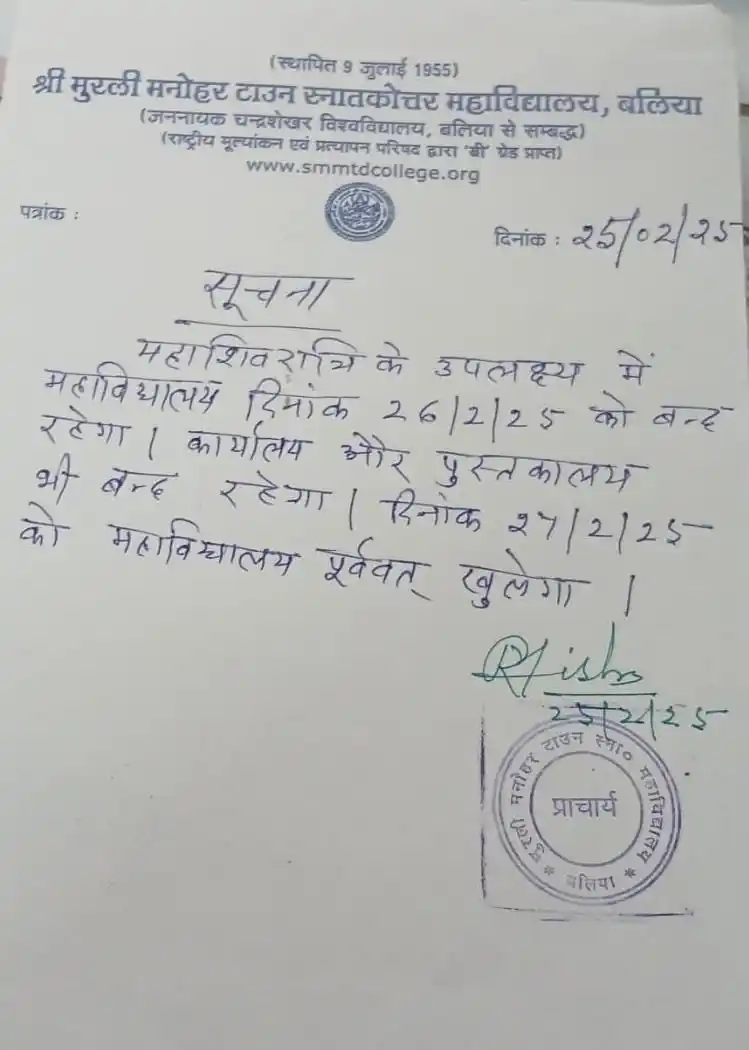 (स्थापित 9 जुलाई 1955)
श्री मुरली मनोहर टाउन स्नातकोत्तर महाविद्यालय, बलिया
(जननायक चन्द्रशेखर विश्वविद्यालय, बलिया से सम्बद्ध)
(राष्ट्रीय मूल्यांकन एवं प्रत्यापन परिषद द्वारा 'बी' ग्रेड प्राप्त)
www.smmtdcollege.org
पत्रांक :
दिनांक : 25/02/25
सूचना
महाशिवरात्रि के उपलक्ष्य में
महाविद्यालय दिनांक 26/2/25 को बन्द
रहेगा । कार्यालय और पुस्तकालय
भी बन्द रहेगा । दिनांक 27/2/25
को महाविद्यालय पूर्ववत् खुलेगा ।
25/2/25
मुरली मनोहर टाउन स्ना० महाविद्यालय
प्राचार्य
* बलिया *